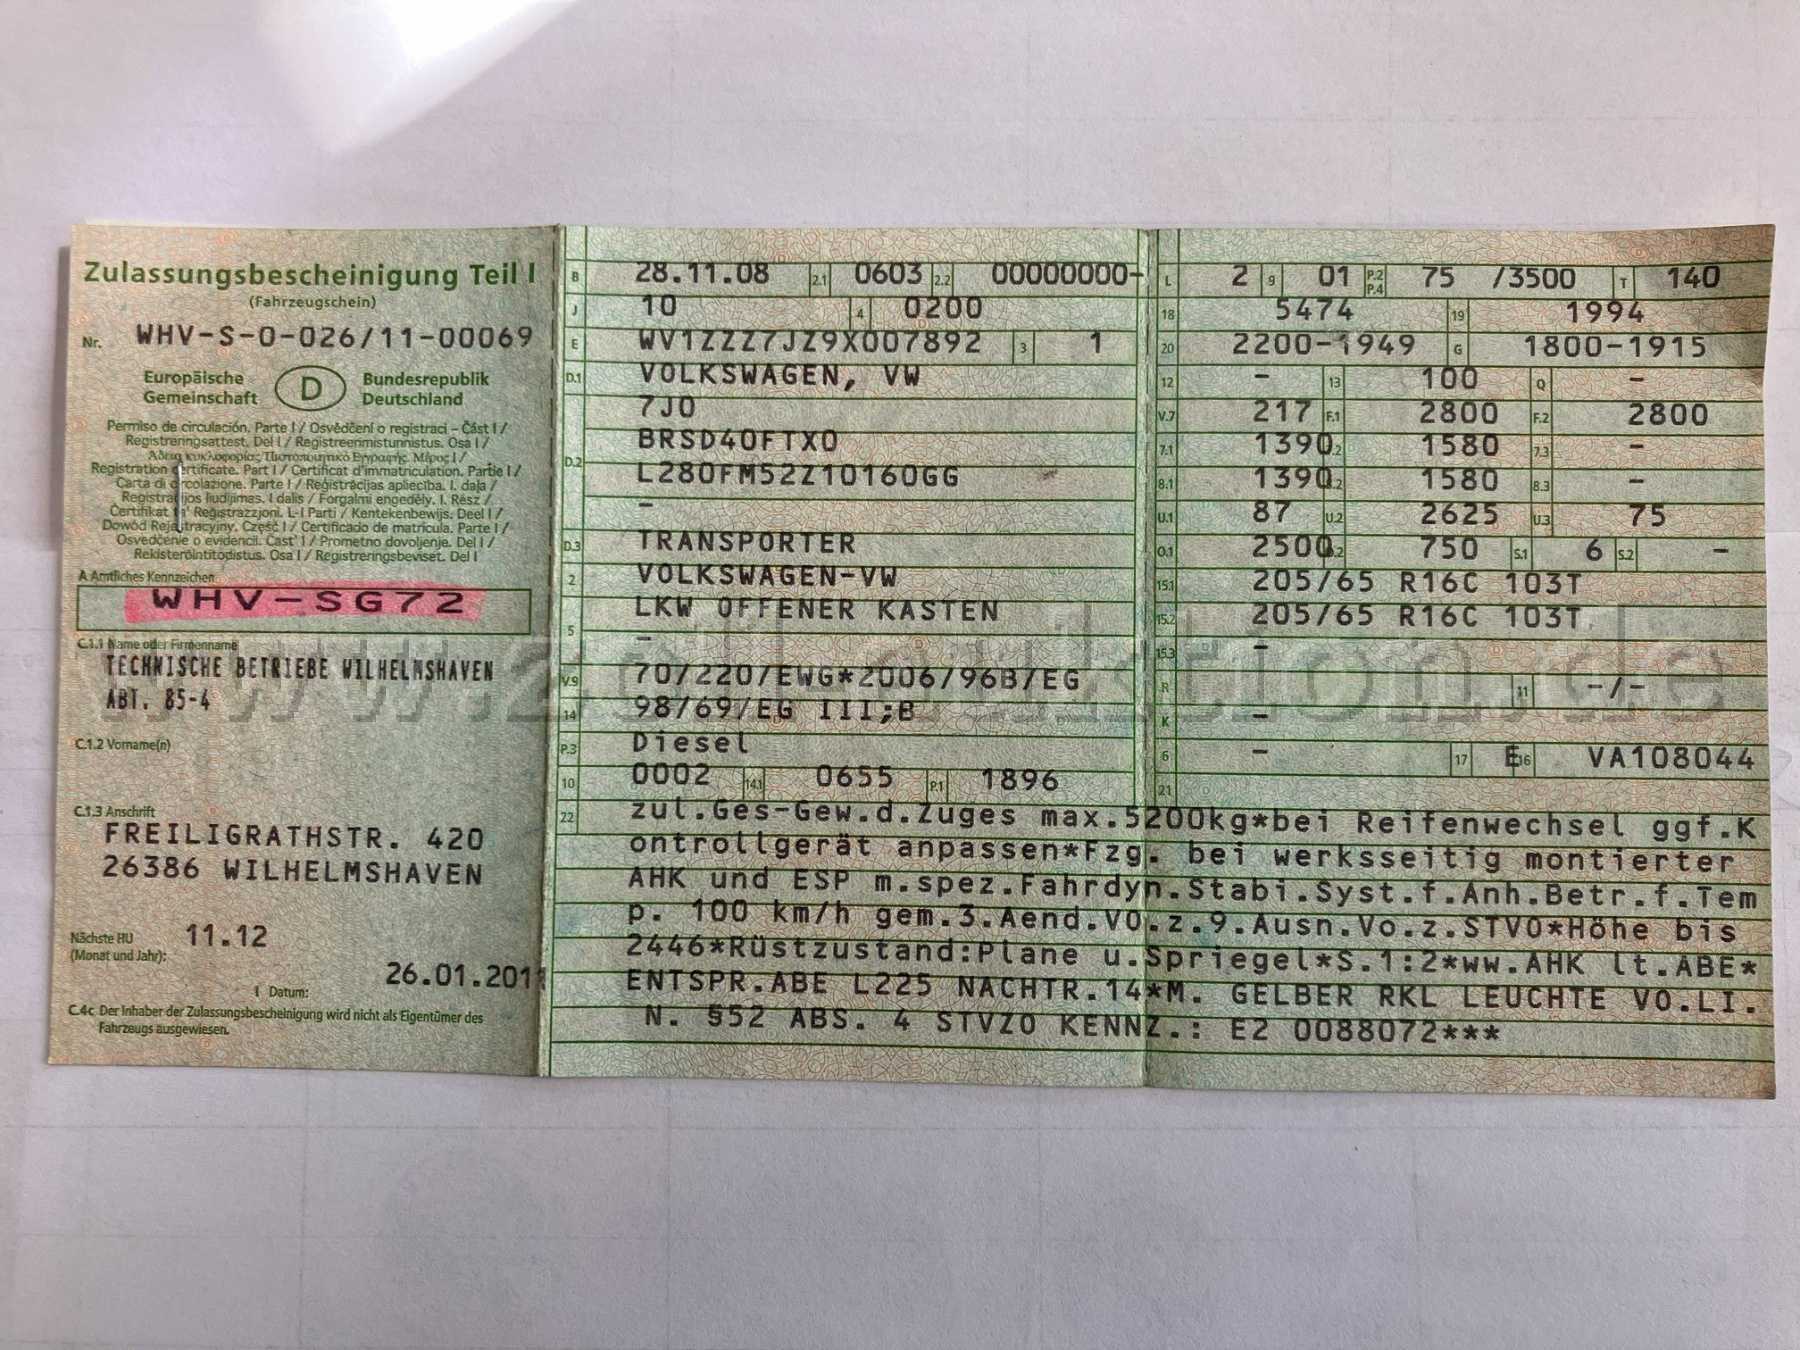 Zulassungsbescheinigung Teil I
(Fahrzeugschein)
Nr. WHV-S-0-026/11-00069
Europäische Gemeinschaft D Bundesrepublik Deutschland
Permiso de circulación. Parte I / Osvědčení o registraci – Část I /
Registreringsattest. Del I / Registreerimistunnistus. Osa I /
Άδεια κυκλοφορίας/Πιστοποιητικό Εγγραφής. Μέρος I /
Registration certificate. Part I / Certificat d'immatriculation. Partie I /
Carta di circolazione. Parte I / Reģistrācijas apliecība. I. daļa /
Registracijos liudijimas. I dalis / Forgalmi engedély. I. Rész /
Ċertifikat ta' Reġistrazzjoni. L-I Parti / Kentekenbewijs. Deel I /
Dowód Rejestracyjny. Część I / Certificado de matrícula. Parte I /
Osvedčenie o evidencii. Časť I / Prometno dovoljenje. Del I /
Rekisteröintitodistus. Osa I / Registreringsbeviset. Del I
A Amtliches Kennzeichen
WHV-SG72
C.1.1 Name oder Firmenname
TECHNISCHE BETRIEBE WILHELMSHAVEN
ABT. 85-4
C.1.2 Vorname(n)
C.1.3 Anschrift
FREILIGRATHSTR. 420
26386 WILHELMSHAVEN
Nächste HU 11.12
(Monat und Jahr):
26.01.2011
I Datum:
C.4c Der Inhaber der Zulassungsbescheinigung wird nicht als Eigentümer des
Fahrzeugs ausgewiesen.
B 28.11.08 2.1 0603 2.2 00000000-
J 10 4 0200
E WV1ZZZ7JZ9X007892 3 1
D.1 VOLKSWAGEN, VW
7J0
D.2 BRSD40FTX0
L280FM52Z10160GG
-
D.3 TRANSPORTER
2 VOLKSWAGEN-VW
5 LKW OFFENER KASTEN
-
V.9 70/220/EWG*2006/96B/EG
14 98/69/EG III;B
P.3 Diesel
10 0002 14.1 0655 P.1 1896
L 2 9 01 P.2 P.4 75 /3500 T 140
18 5474 19 1994
20 2200-1949 G 1800-1915
12 - 13 100 Q -
V.7 217 F.1 2800 F.2 2800
7.1 1390 7.2 1580 7.3 -
8.1 1390 8.2 1580 8.3 -
U.1 87 U.2 2625 U.3 75
O.1 2500 O.2 750 S.1 6 S.2 -
15.1 205/65 R16C 103T
15.2 205/65 R16C 103T
15.3 -
R 11 -/-
K -
6 - 17 E 16 VA108044
21
22 zul.Ges-Gew.d.Zuges max.5200kg*bei Reifenwechsel ggf.K
ontrollgerät anpassen*Fzg. bei werksseitig montierter
AHK und ESP m.spez.Fahrdyn.Stabi.Syst.f.Anh.Betr.f.Tem
p. 100 km/h gem.3.Aend.VO.z.9.Ausn.Vo.z.STVO*Höhe bis
2446*Rüstzustand:Plane u.Spriegel*S.1:2*ww.AHK lt.ABE*
ENTSPR.ABE L225 NACHTR.14*M. GELBER RKL LEUCHTE VO.LI.
N. §52 ABS. 4 STVZO KENNZ.: E2 0088072***
www.zoll-auktion.de